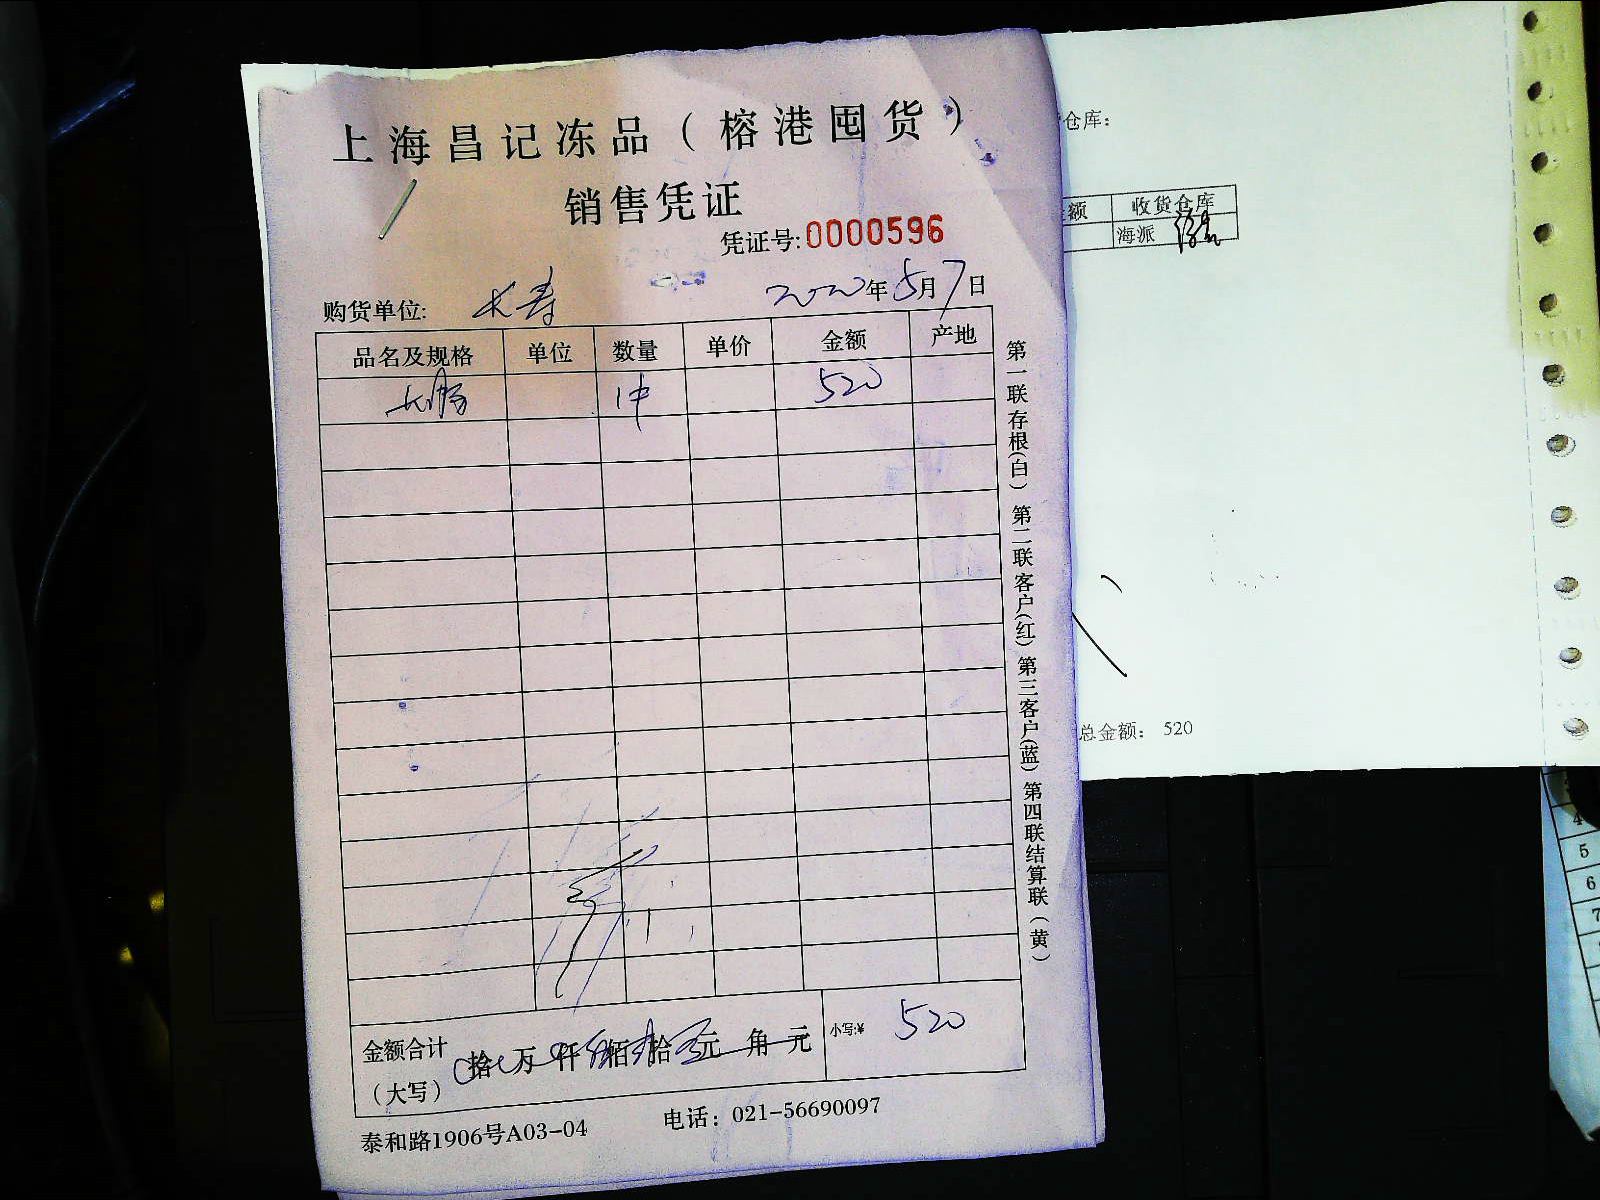 上海昌记冻品（榕港囤货）
销售凭证
凭证号:0000596
购货单位: 长寿 2020年5月7日
品名及规格 单位 数量 单价 金额 产地
大肠 1件 520
第一联存根(白) 第二联客户(红) 第三客户(蓝) 第四联结算联(黄)
金额合计（大写） 拾 万 仟 佰 拾 元 角 元 小写:¥ 520
泰和路1906号A03-04 电话：021-56690097
仓库：
额 收货仓库
海派
总金额： 520
4
5
6
7